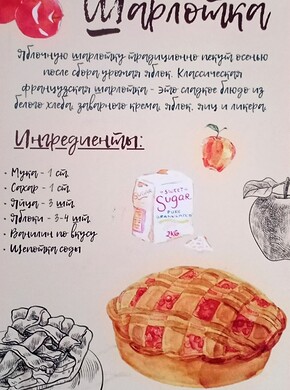 Шарлотка
Яблочную шарлотку традиционно пекут осенью
после сбора урожая яблок. Классическая
французская шарлотка - это сладкое блюдо из
белого хлеба, заварного крема, яблок, яиц и ликера.
Ингредиенты:
• Мука - 1 ст.
• Сахар - 1 ст.
• Яйца - 3 шт.
• Яблоки - 3-4 шт.
• Ванилин по вкусу
• Щепотка соды
SWEET
Sugar
PURE
GRANULATED
2KG